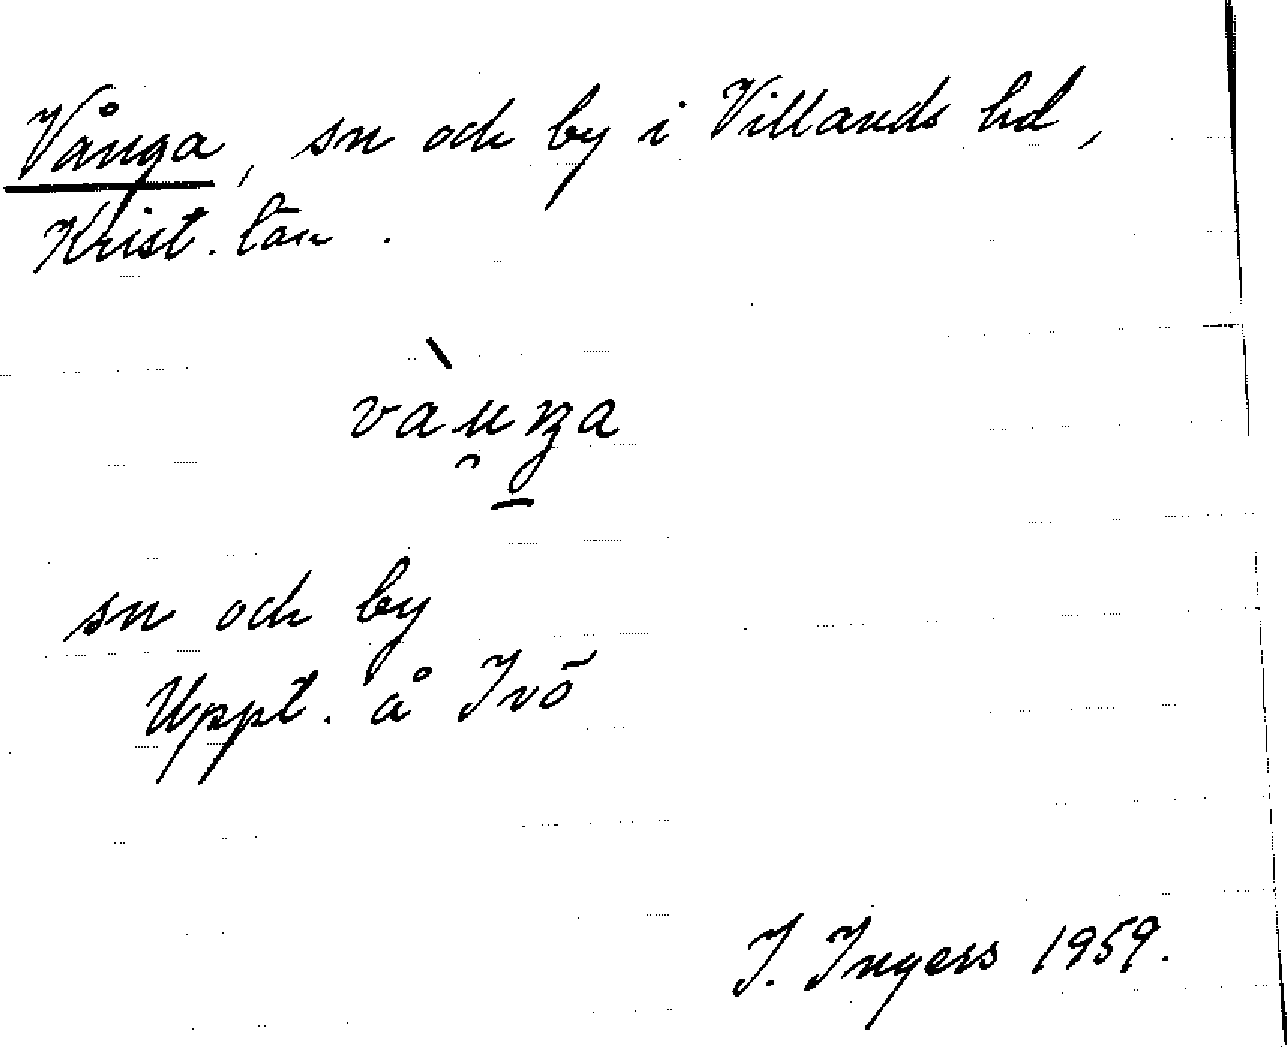 Vånga, sn och by i Villands hd,
Krist. län.
sn och by
Uppt. å Ivö
I. Ingers 1959.